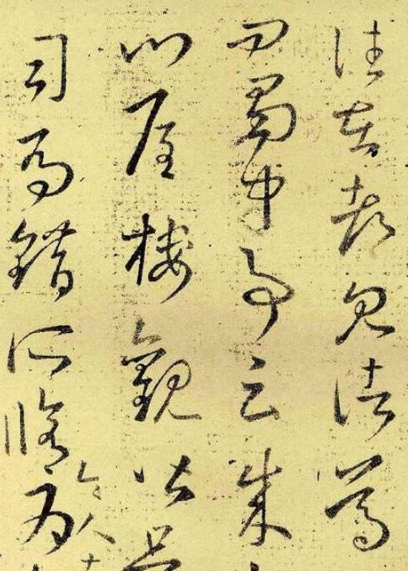 往在都見諸葛
問蜀中事云成
門屋樓觀皆是
司馬錯所脩為
令人